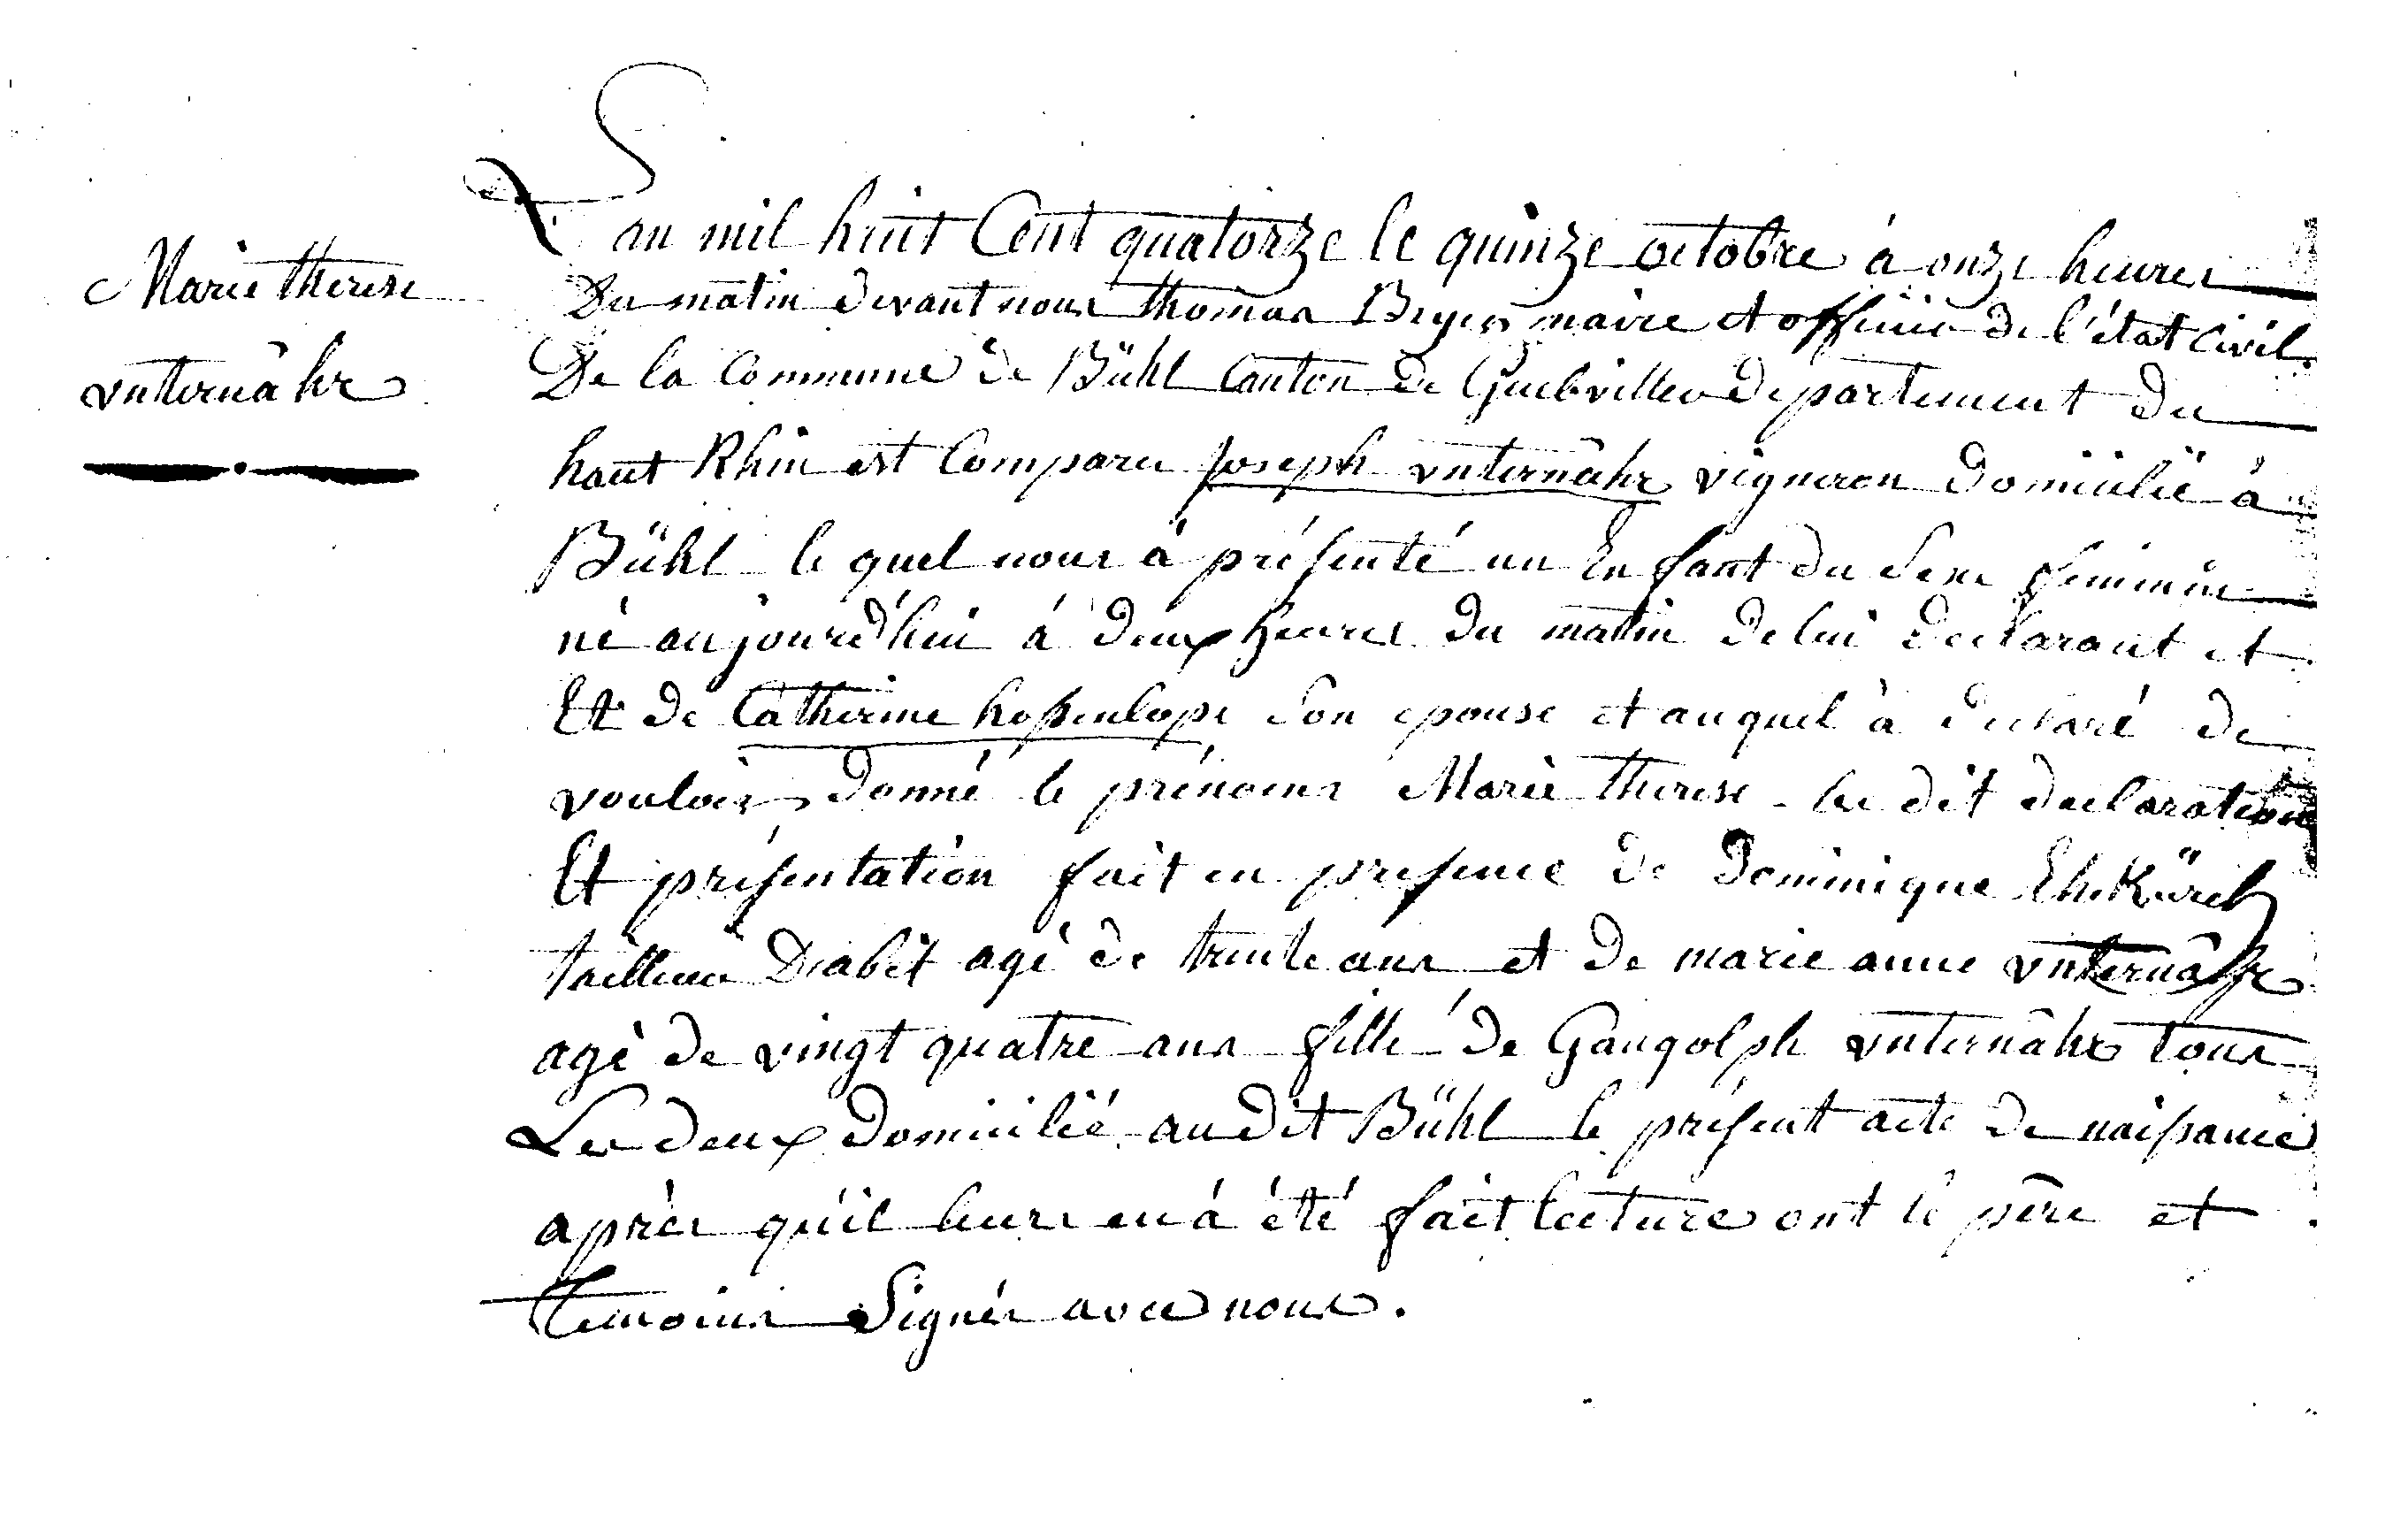 Marie therese
vnternâhr
L'an mil huit Cent quatorze le quinze octobre à onze heures
Du matin devant nous thomas Beyer maire et officier de l'état Civil
De la Commune de Bühl Canton de Guebviller departement du
haut Rhin est Comparu joseph vnternâhr vigneron domicilié à
Bühl le quel nous à présenté un Enfant du Sexe feminin
né aujourd'hui à deux heures du matin de lui declarant et
Et de Catherine son epouse et auquel à declaré de
vouloir donné le prénoms Marie therese le dit declaration
Et présentation fait en presence de Dominique
tailleur Dabit agé de trente ans et de marie anne vnternâhr
agé de vingt quatre ans fille de Gangolph vnternâhr tous
Les deux domicilié audit Bühl le présent acte de naissance
après qu'il leurs en à été fait lecture ont le père et
Temoins Signés avec nous.